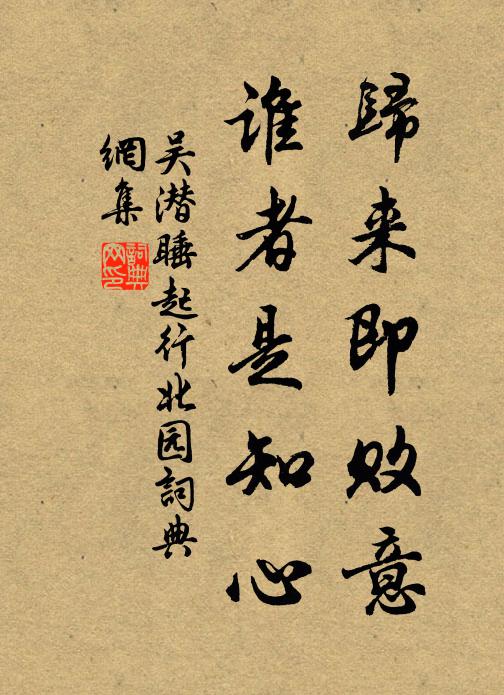 歸来即败意
谁者是知心
吴潜睡起行北园詞典
網集
詞典
网印